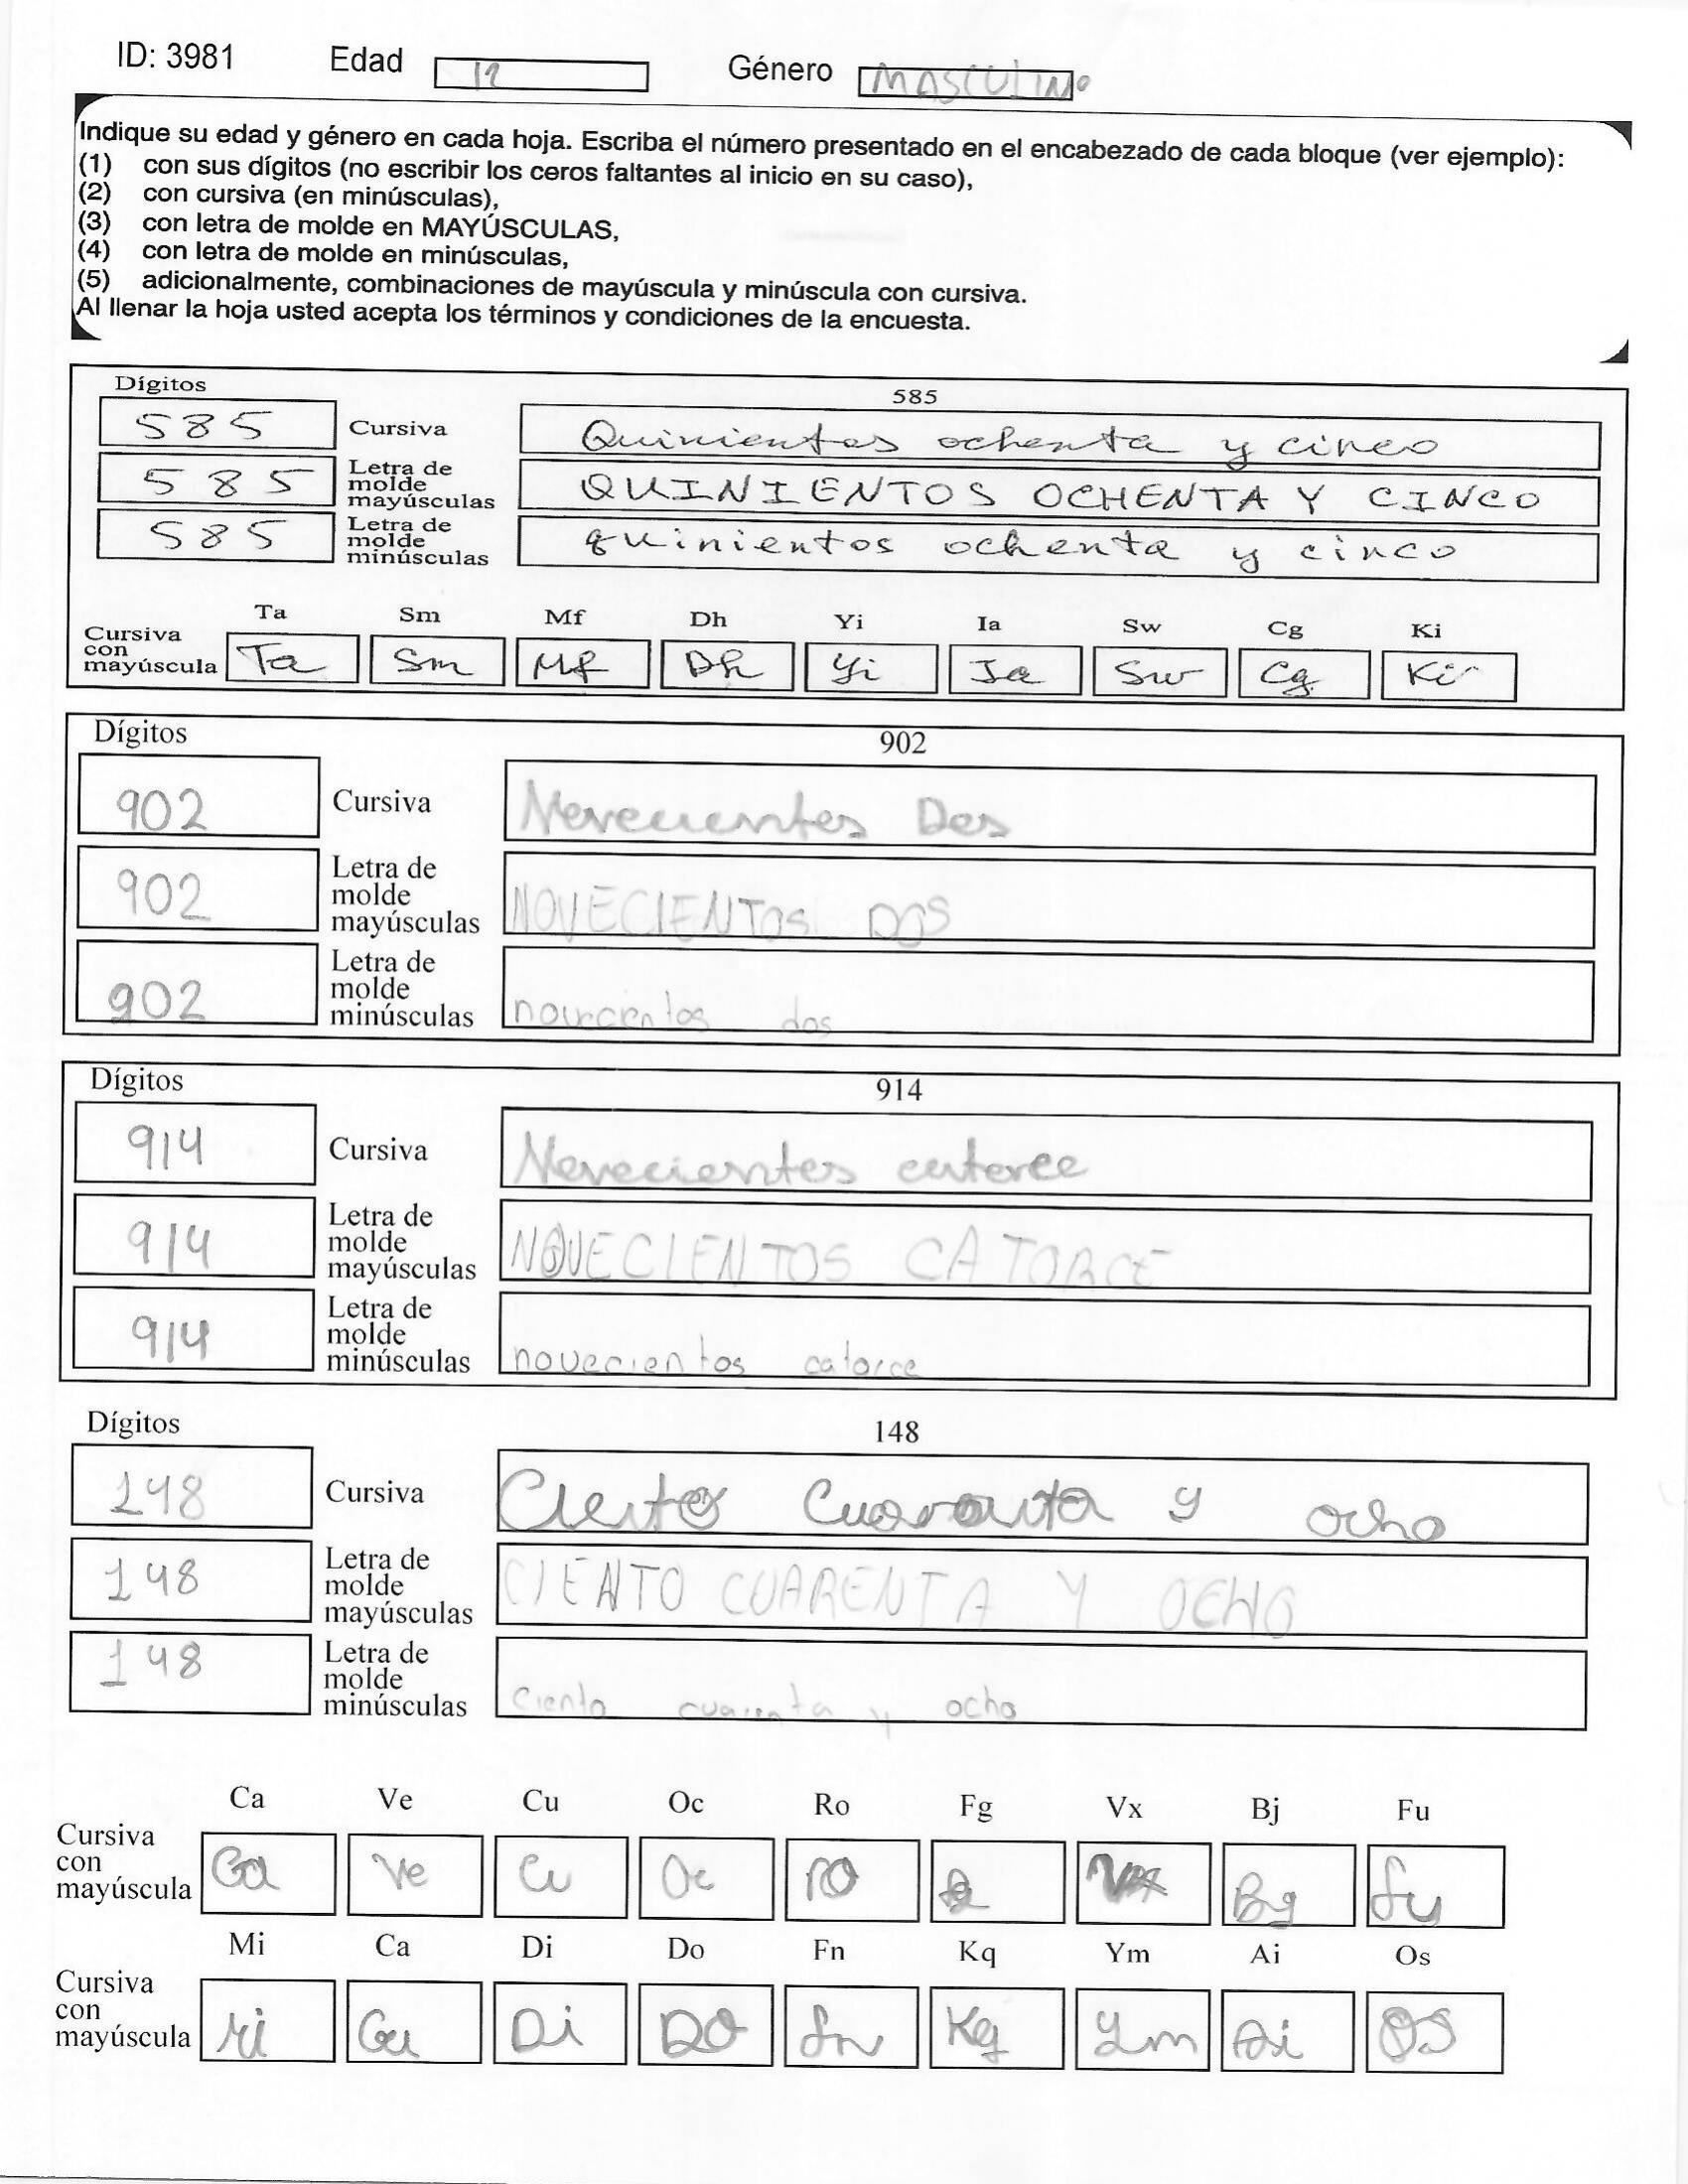 ID: 3981 Edad 12 Género MASCULINO
Indique su edad y género en cada hoja. Escriba el número presentado en el encabezado de cada bloque (ver ejemplo):
(1) con sus dígitos (no escribir los ceros faltantes al inicio en su caso),
(2) con cursiva (en minúsculas),
(3) con letra de molde en MAYÚSCULAS,
(4) con letra de molde en minúsculas,
(5) adicionalmente, combinaciones de mayúscula y minúscula con cursiva.
Al llenar la hoja usted acepta los términos y condiciones de la encuesta.
Dígitos 585
585 Cursiva Quinientos ochenta y cinco
585 Letra de molde mayúsculas QUINIENTOS OCHENTA Y CINCO
585 Letra de molde minúsculas quinientos ochenta y cinco
Ta Sm Mf Dh Yi Ia Sw Cg Ki
Cursiva con mayúscula Ta Sm Mf Dh Yi Ia Sw Cg Ki
Dígitos 902
902 Cursiva Novecientos Dos
902 Letra de molde mayúsculas NOVECIENTOS DOS
902 Letra de molde minúsculas dos
Dígitos 914
914 Cursiva Novecientos catorce
914 Letra de molde mayúsculas NOVECIENTOS CATORCE
914 Letra de molde minúsculas novecientos catorce
Dígitos 148
148 Cursiva Ciento Cuaranta y ocho
148 Letra de molde mayúsculas CIENTO CUARENTA Y OCHO
148 Letra de molde minúsculas ciento cuarenta y ocho
Ca Ve Cu Oc Ro Fg Vx Bj Fu
Cursiva con mayúscula Ca Ve Cu Oc ro Vx Bg fu
Mi Ca Di Do Fn Kq Ym Ai Os
Cursiva con mayúscula Mi Ca Di DO fn Kq Ym Ai OS